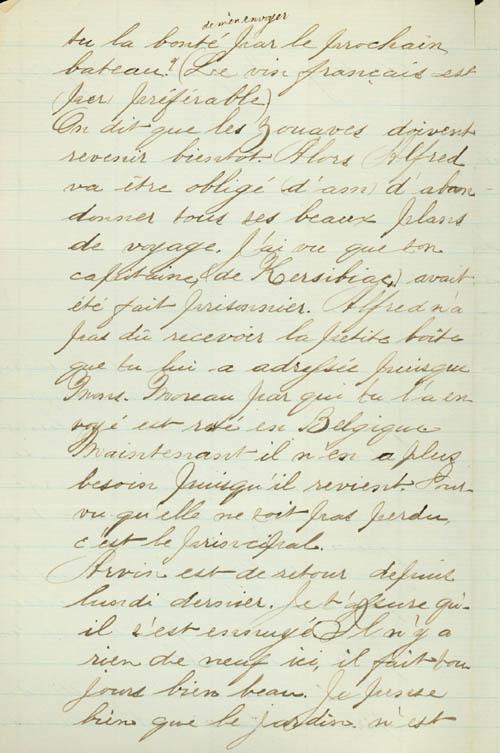 de m'en envoyer
tu la bonté par le prochain
bateau? (Le vin français est
préférable)
On dit que les Zouaves doivent
revenir bientot. Alors Alfred
va être obligé (d'am) d'aban
donner tous ses beaux plans
de voyage. J'ai vu que son
capitaine, (de Kersibiac) avait
été fait prisonnier. Alfred n'a
pas dû recevoir la petite boîte
que tu lui a adressée puisque
Mons. Moreau par qui tu l'a en
voyé est en Belgique
Maintenant il n'en a plus
besoin puisqu'il revient. Pour-
vu qu'elle ne soit pas perdu,
c'est le principal.
Arvin est de retour depuis
lundi dernier. Je t'assure qu'-
il s'est ennuyé Il n'y a
rien de neuf ici, il fait tou
jours bien beau. Je pense
bien que le jardin n'est